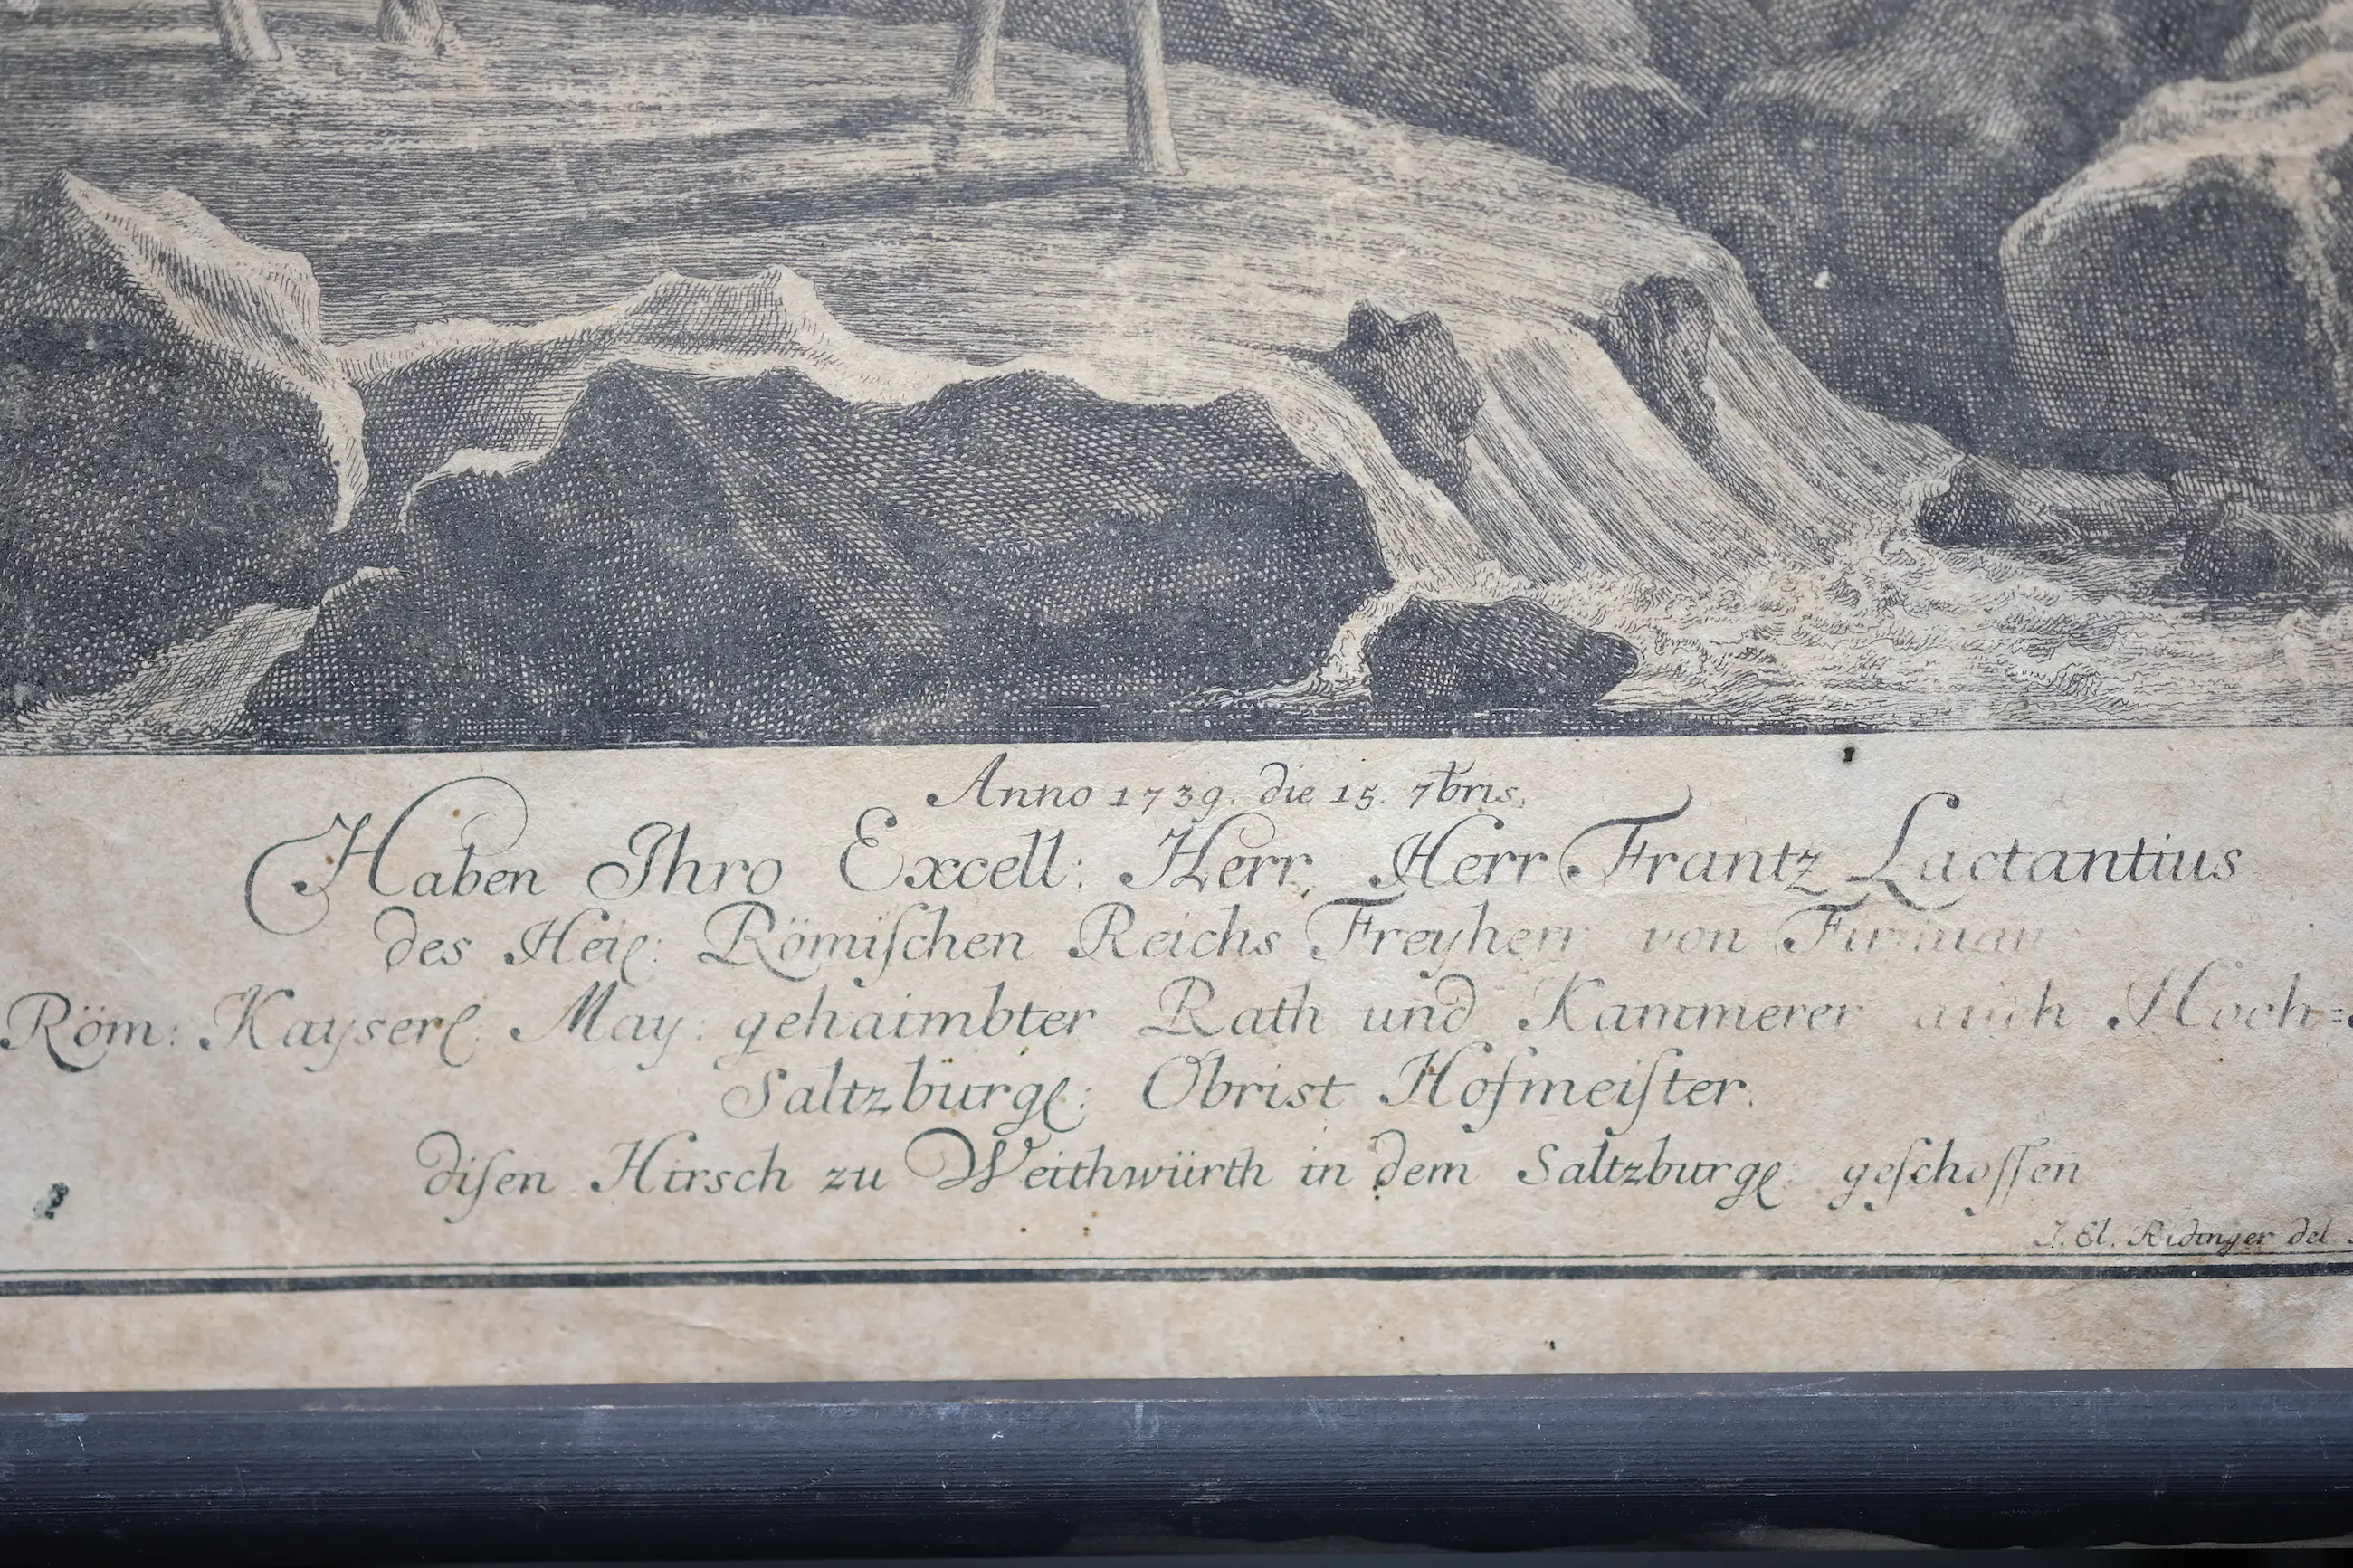 Anno 1739. die 15. 7bris,
Haben Ihro Excell: Herr, Herr Frantz Lactantius
des Heil: Römiſchen Reichs Freyherr von Firmian
Röm: Kayserl: May: gehaimbter Rath und Kammerer auch Hoch=
Saltzburgl: Obrist Hofmeiſter.
diſen Hirsch zu Weithwürth in dem Saltzburgl: geſchoſſen
J. El. Ridinger del.